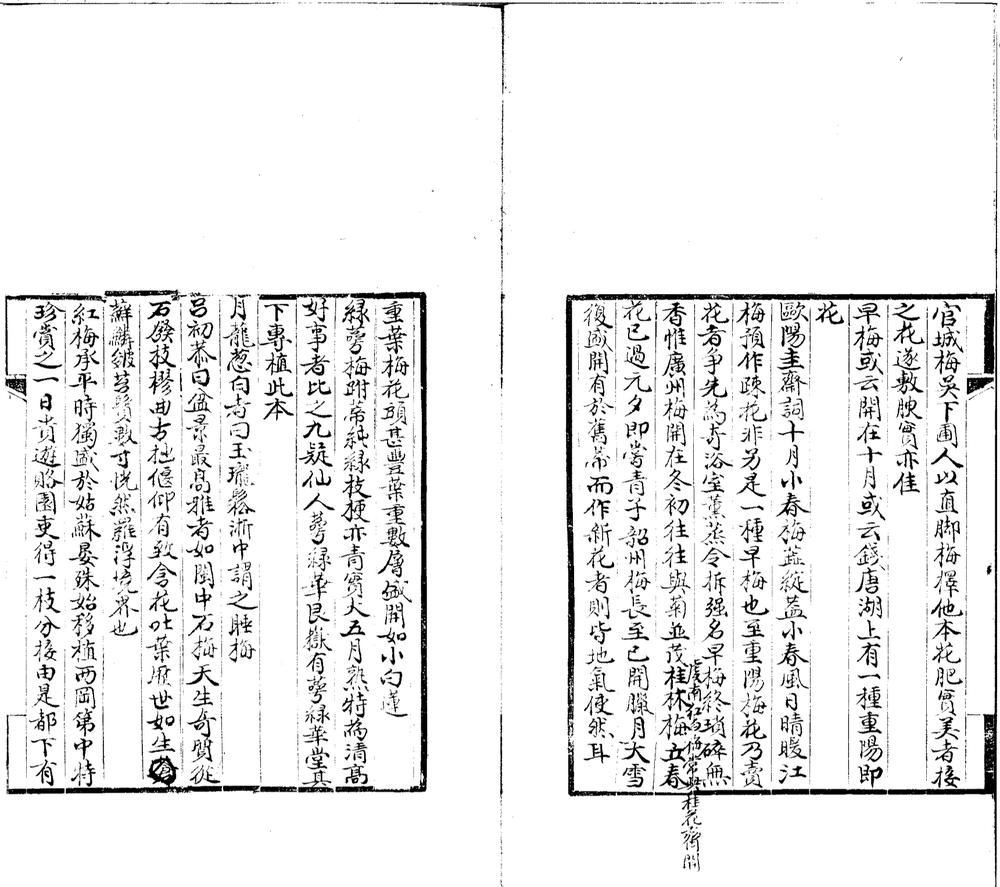 官城梅吳下圃人以直脚梅擇他本花肥實美者接
之花遂敷腴實亦佳
早梅或云開在十月或云錢唐湖上有一種重陽即
花
歐陽圭齋詞十月小春梅蕊綻蓋小春風日晴暖江
梅預作疎花非另是一種早梅也至重陽梅花乃賣
花者爭先為奇浴室薰蒸令拆强名早梅終瑣碎無
香惟廣州梅開在冬初往往與菊並茂桂林梅立春
南紅白梅常與桂花齊開
花已過元夕即嘗青子韶州梅長至已開臘月大雪
復盛開有於舊蒂而作新花者則皆地氣使然耳
重葉梅花頭甚豐葉重數層盛開如小白蓮
綠萼梅跗蒂純綠枝梗亦青實大五月熟特為清高
好事者比之九疑仙人萼綠華艮嶽有萼綠華堂其
下專植此本
月龍葱白者曰玉瓏鬆淅中謂之睡梅
呂初泰曰盆景最高雅者如閩中石梅天生奇質從
石發枝樛曲古拙偃仰有致含花吐葉歷世如生
蘚鱗皴苔鬚數寸恍然羅浮境界也
紅梅承平時獨盛於姑蘇晏殊始移植西岡第中特
珍賞之一日貴遊賂園吏得一枝分接由是都下有